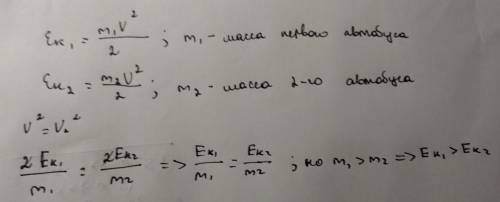 Eк₁ = m₁V²/2 ; m₁ - масса первого автобуса
Eк₂ = m₂V²/2 ; m₂ - масса 2-го автобуса
V² = V₂²
2Eк₁/m₁ = 2Eк₂/m₂ => Eк₁/m₁ = Eк₂/m₂ ; но m₁ > m₂ => Eк₁ > Eк₂